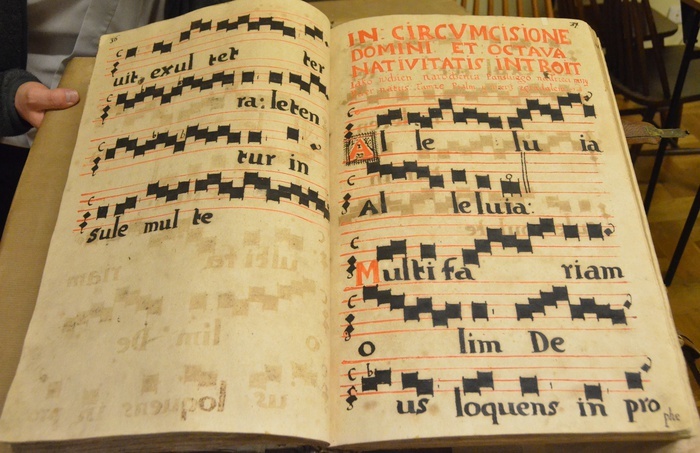 uit, exul tet ter
ra: leten
tur in
sule mul te
IN CIRCVMCISIONE
DOMINI ET OCTAVA
NATIVITATIS INTROIT
Al le lu ia
Al leluia
Multi fa riam
O lim De
us loquens in pro
phe